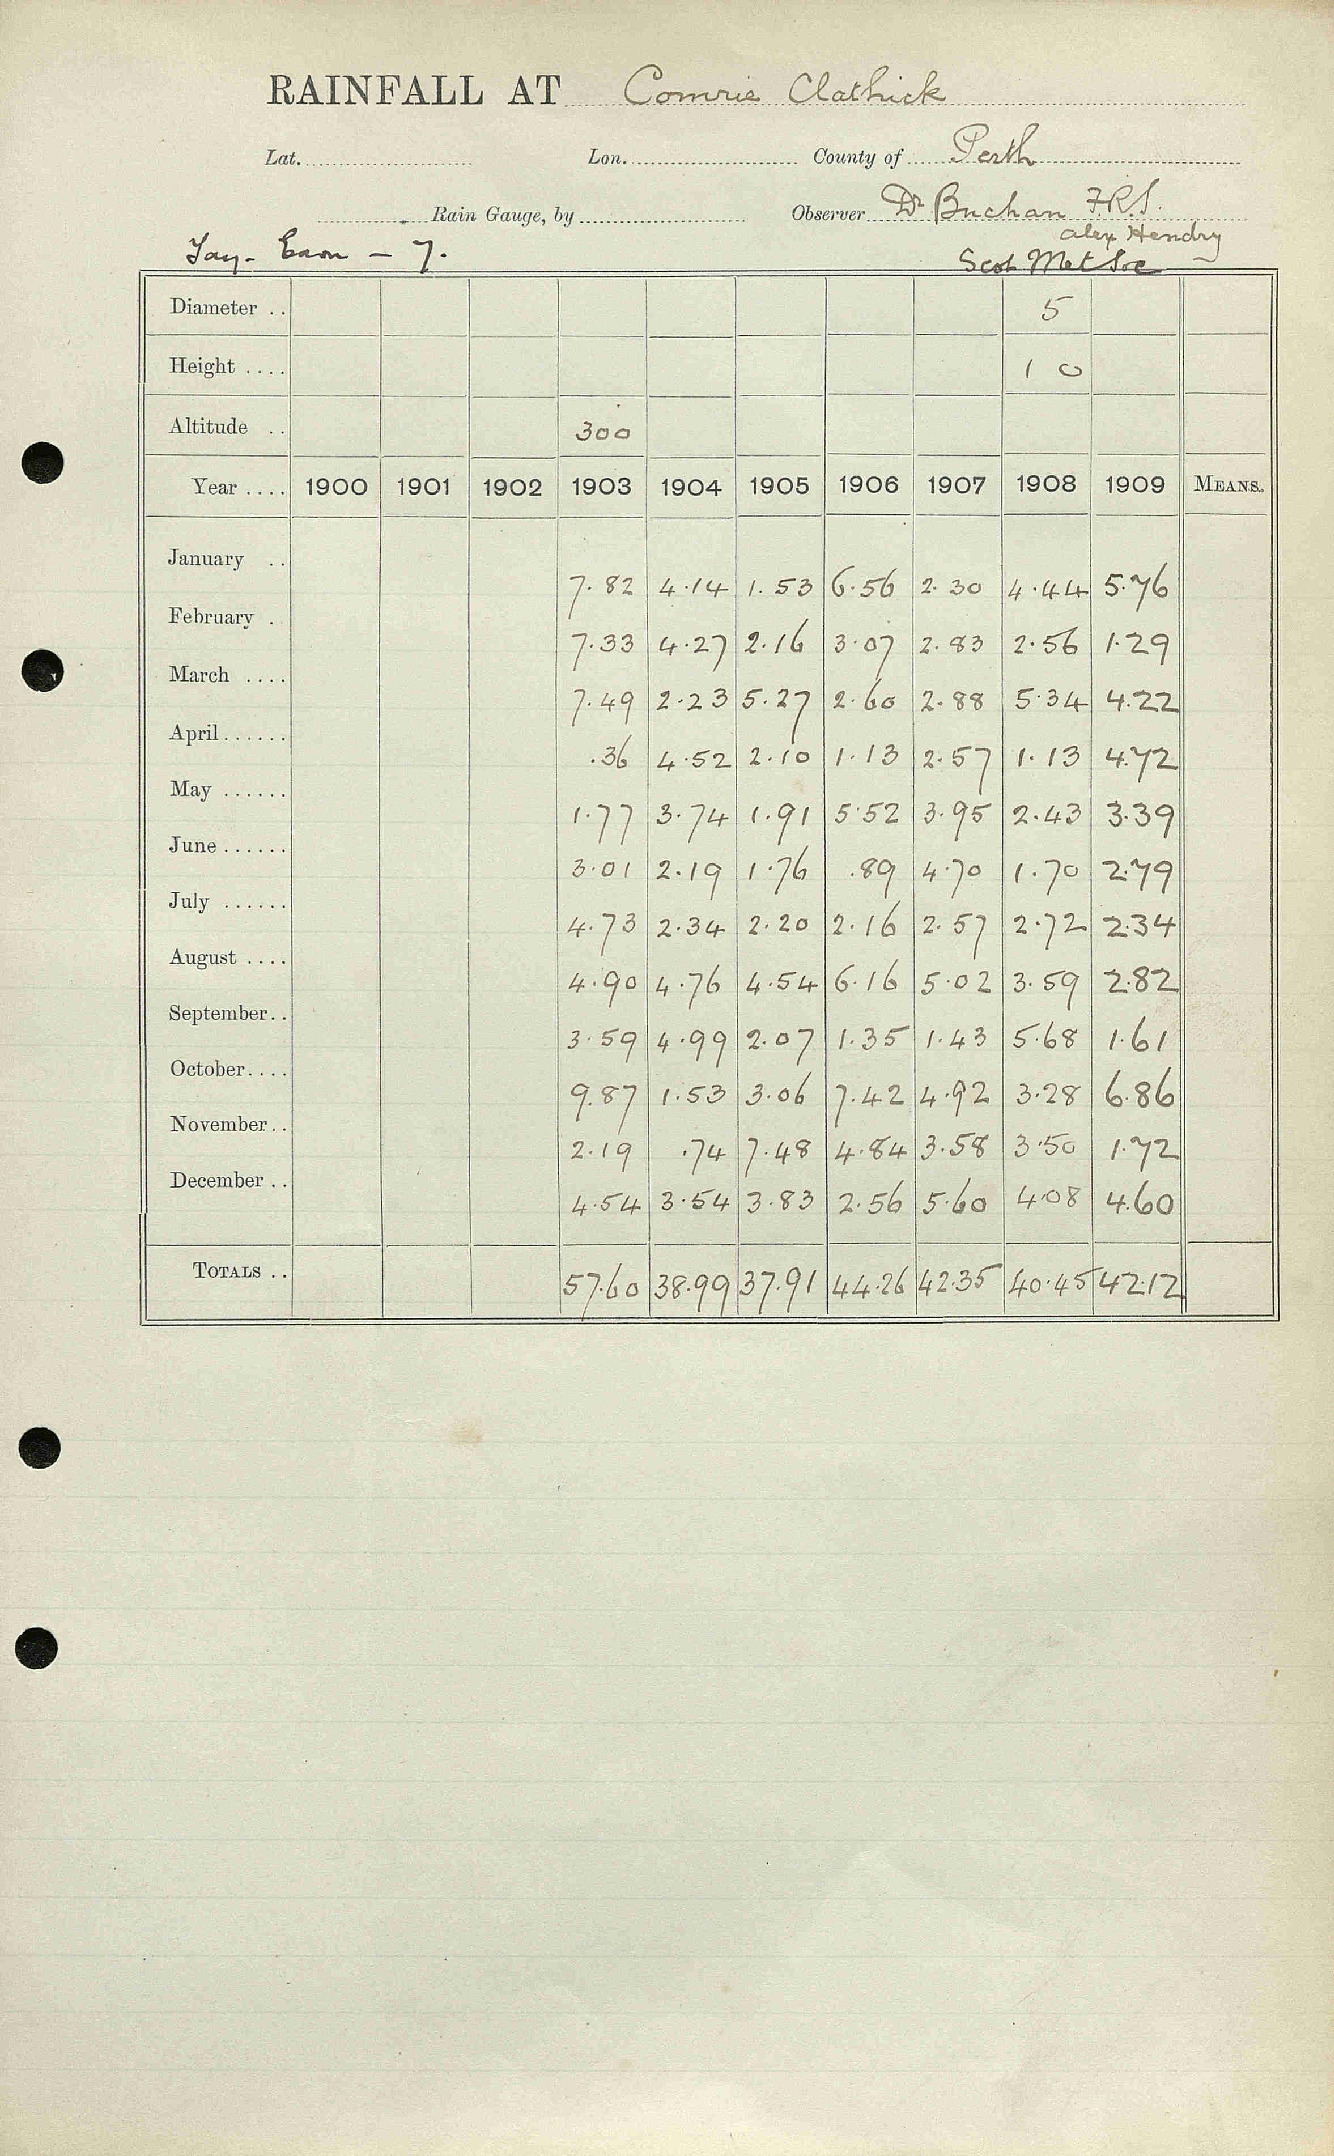 RAINFALL AT Comrie Clathick
Lat. Lon. County of Perth
Rain Gauge, by Observer Dr Buchan F.R.S.
Alex Hendry
Tay - Earn - 7. Scot Met Soc
Diameter .. 5
Height .... 1 0
Altitude .. 300
Year .... 1900 1901 1902 1903 1904 1905 1906 1907 1908 1909 MEANS.
January .. 7.82 4.14 1.53 6.56 2.30 4.44 5.76
February . 7.33 4.27 2.16 3.07 2.83 2.56 1.29
March .... 7.49 2.23 5.27 2.60 2.88 5.34 4.22
April...... .36 4.52 2.10 1.13 2.57 1.13 4.72
May ...... 1.77 3.74 1.91 5.52 3.95 2.43 3.39
June ...... 3.01 2.19 1.76 .89 4.70 1.70 2.79
July ...... 4.73 2.34 2.20 2.16 2.57 2.72 2.34
August .... 4.90 4.76 4.54 6.16 5.02 3.59 2.82
September.. 3.59 4.99 2.07 1.35 1.43 5.68 1.61
October.... 9.87 1.53 3.06 7.42 4.92 3.28 6.86
November.. 2.19 .74 7.48 4.84 3.58 3.50 1.72
December .. 4.54 3.54 3.83 2.56 5.60 4.08 4.60
TOTALS .. 57.60 38.99 37.91 44.26 42.35 40.45 42.12